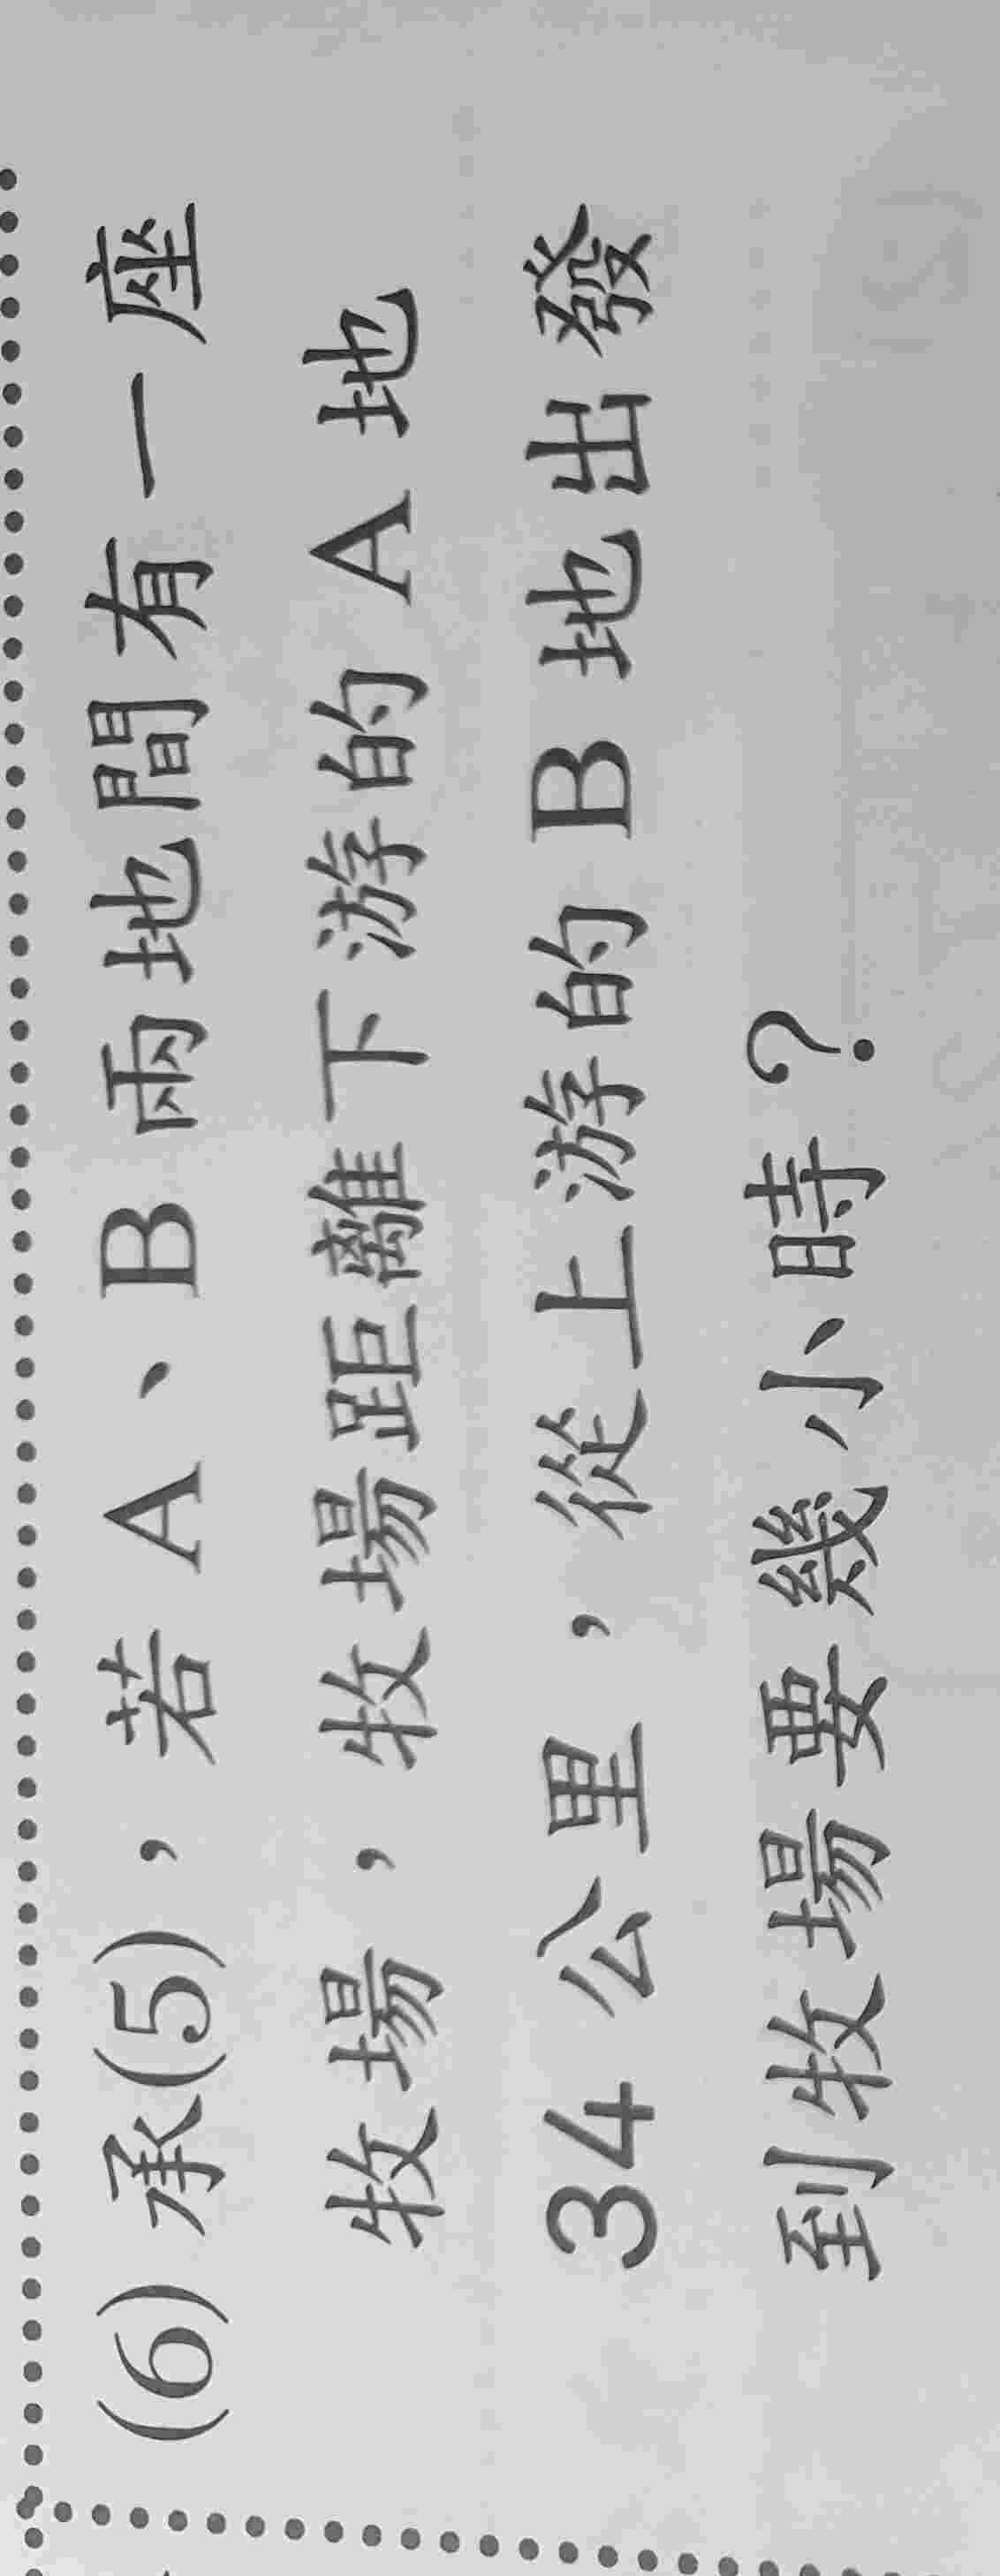 (6) 承(5)，若 A、B 兩地間有一座
牧場，牧場距離下游的 A 地
34 公里，從上游的 B 地出發
到牧場要幾小時？